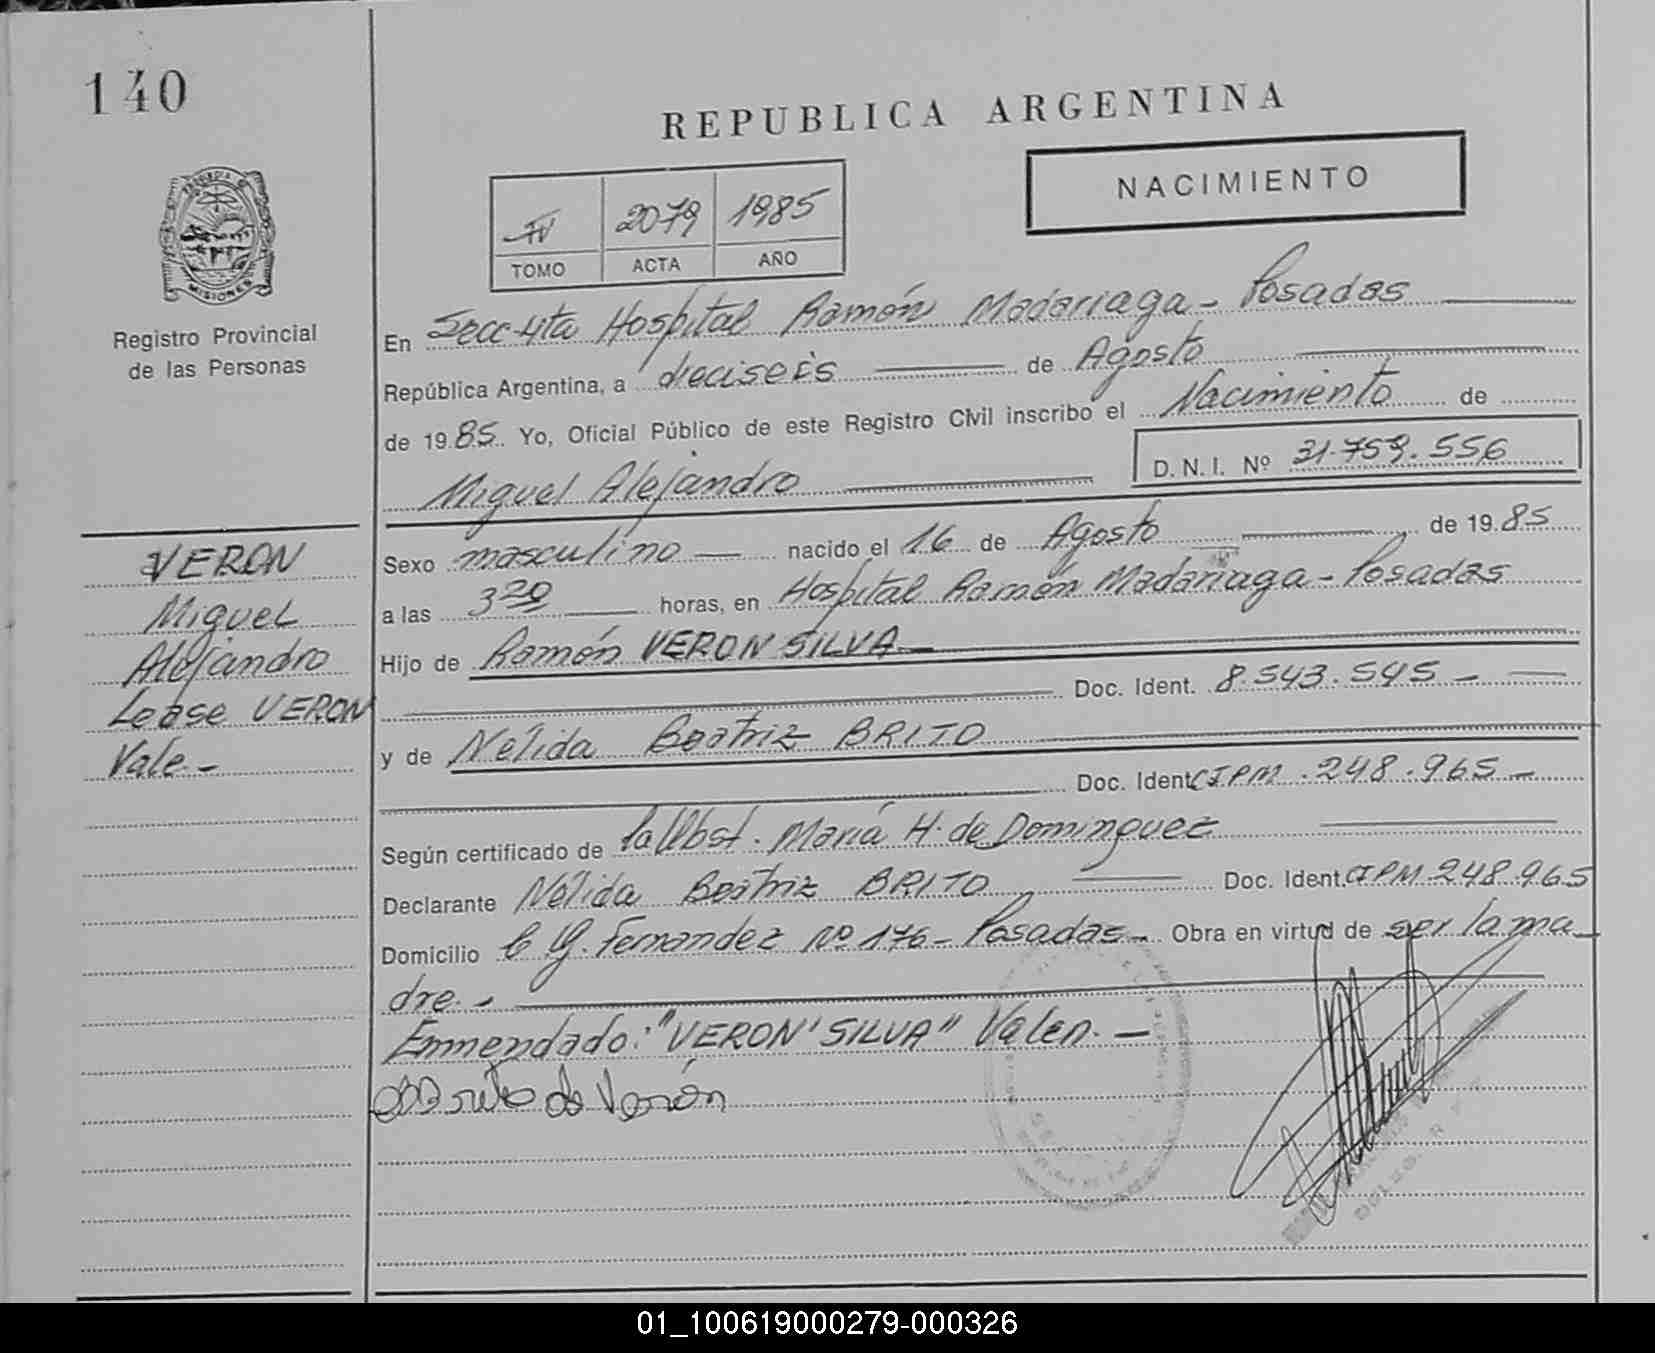 140
REPUBLICA ARGENTINA
NACIMIENTO
IV 2079 1985
TOMO ACTA AÑO
PROVINCIA DE
MISIONES
Registro Provincial
de las Personas
En Secc 4ta Hospital Ramón Madariaga - Posadas
República Argentina, a dieciseis de Agosto
de 1985. Yo, Oficial Público de este Registro Civil inscribo el Nacimiento de
Miguel Alejandro
D. N. I. Nº 31.759.556
Sexo masculino nacido el 16 de Agosto de 1985
a las 3 20 horas, en Hospital Ramón Madariaga - Posadas
Hijo de Ramón VERON SILVA
Doc. Ident. 8.543.545 -
y de Nélida Beatriz BRITO
Doc. Ident. CIPM. 248.965 -
Según certificado de la Obst. María H. de Dominguez
Declarante Nélida Beatriz BRITO Doc. Ident. CIPM 248.965
Domicilio Fernandez Nº 176 - Posadas - Obra en virtud de ser la ma
dre. -
Enmendado: "VERON SILVA" Valen. -
de Verón
VERON
Miguel
Alejandro
Lease VERON
Vale -
01_100619000279-000326